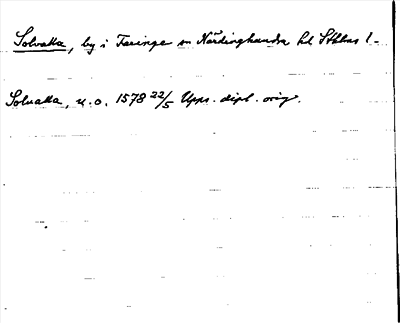 Solvalla, by i Faringe sn Närdinghundra hd Sthlms l.
Solualla, u.o. 1578 22/5 Upps. dipl. orig.